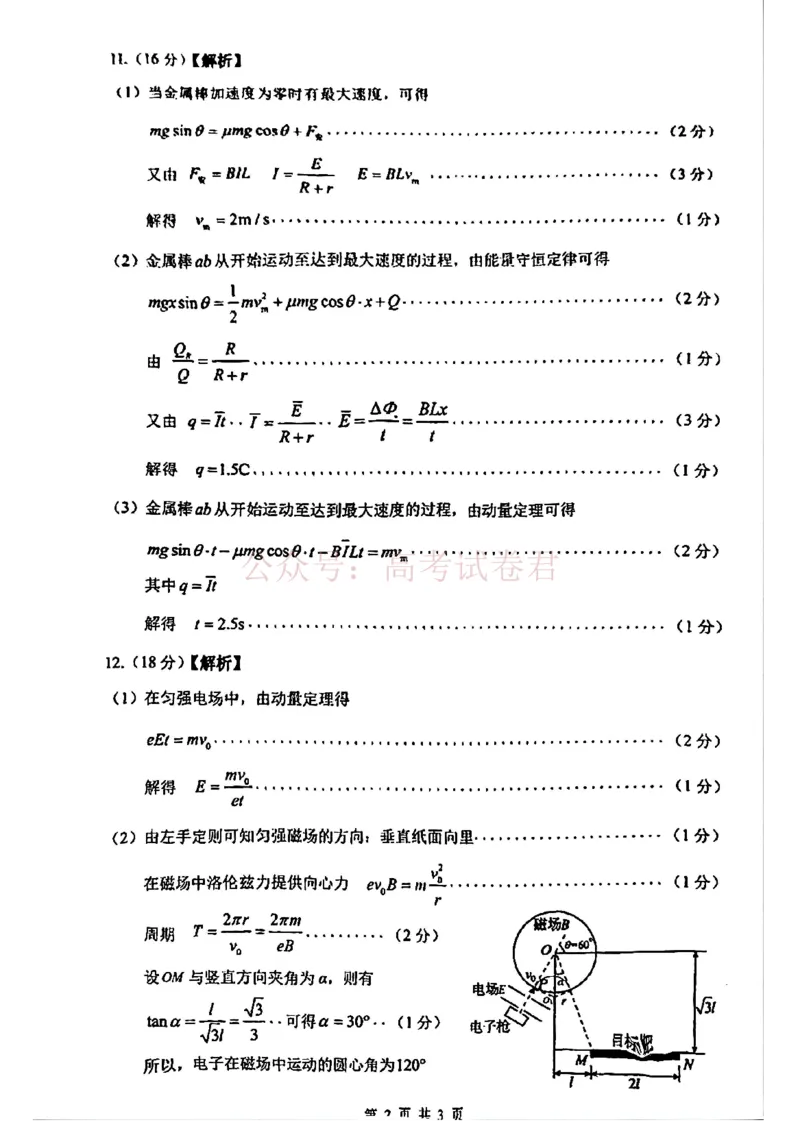 11.（16分）【解析】
（1）当金属棒加速度为零时有最大速度，可得
mg sin θ = μmg cos θ + F安 ⋯⋯（2分）
又由 F安 = BIL I = E/(R+r) E = BLvm ⋯⋯（3分）
解得 vm = 2m/s ⋯⋯（1分）
（2）金属棒ab从开始运动至达到最大速度的过程，由能量守恒定律可得
mgx sin θ = 1/2 mvm² + μmg cos θ·x + Q ⋯⋯（2分）
由 QR/Q = R/(R+r) ⋯⋯（1分）
又由 q = I̅t ⋯ I̅ = E̅/(R+r) ⋯ E̅ = ΔΦ/t = BLx/t ⋯⋯（3分）
解得 q=1.5C ⋯⋯（1分）
（3）金属棒ab从开始运动至达到最大速度的过程，由动量定理可得
mg sin θ·t − μmg cos θ·t − BI̅Lt = mvm ⋯⋯（2分）
公众号：高考试卷君
其中 q = I̅t
解得 t = 2.5s ⋯⋯（1分）
12.（18分）【解析】
（1）在匀强电场中，由动量定理得
eEt = mv₀ ⋯⋯（2分）
解得 E = mv₀/et ⋯⋯（1分）
（2）由左手定则可知匀强磁场的方向：垂直纸面向里 ⋯⋯（1分）
在磁场中洛伦兹力提供向心力 ev₀B = m v₀²/r ⋯⋯（1分）
周期 T = 2πr/v₀ = 2πm/eB ⋯⋯（2分）
设OM与竖直方向夹角为α，则有
tan α = l/√3l = √3/3 ⋯ 可得α = 30° ⋯（1分）
所以，电子在磁场中运动的圆心角为120°
磁场B
O
θ=60°
v₀
α
r
电场E
电子枪
√3l
目标靶
M
N
l
2l
第 2 页 共 3 页